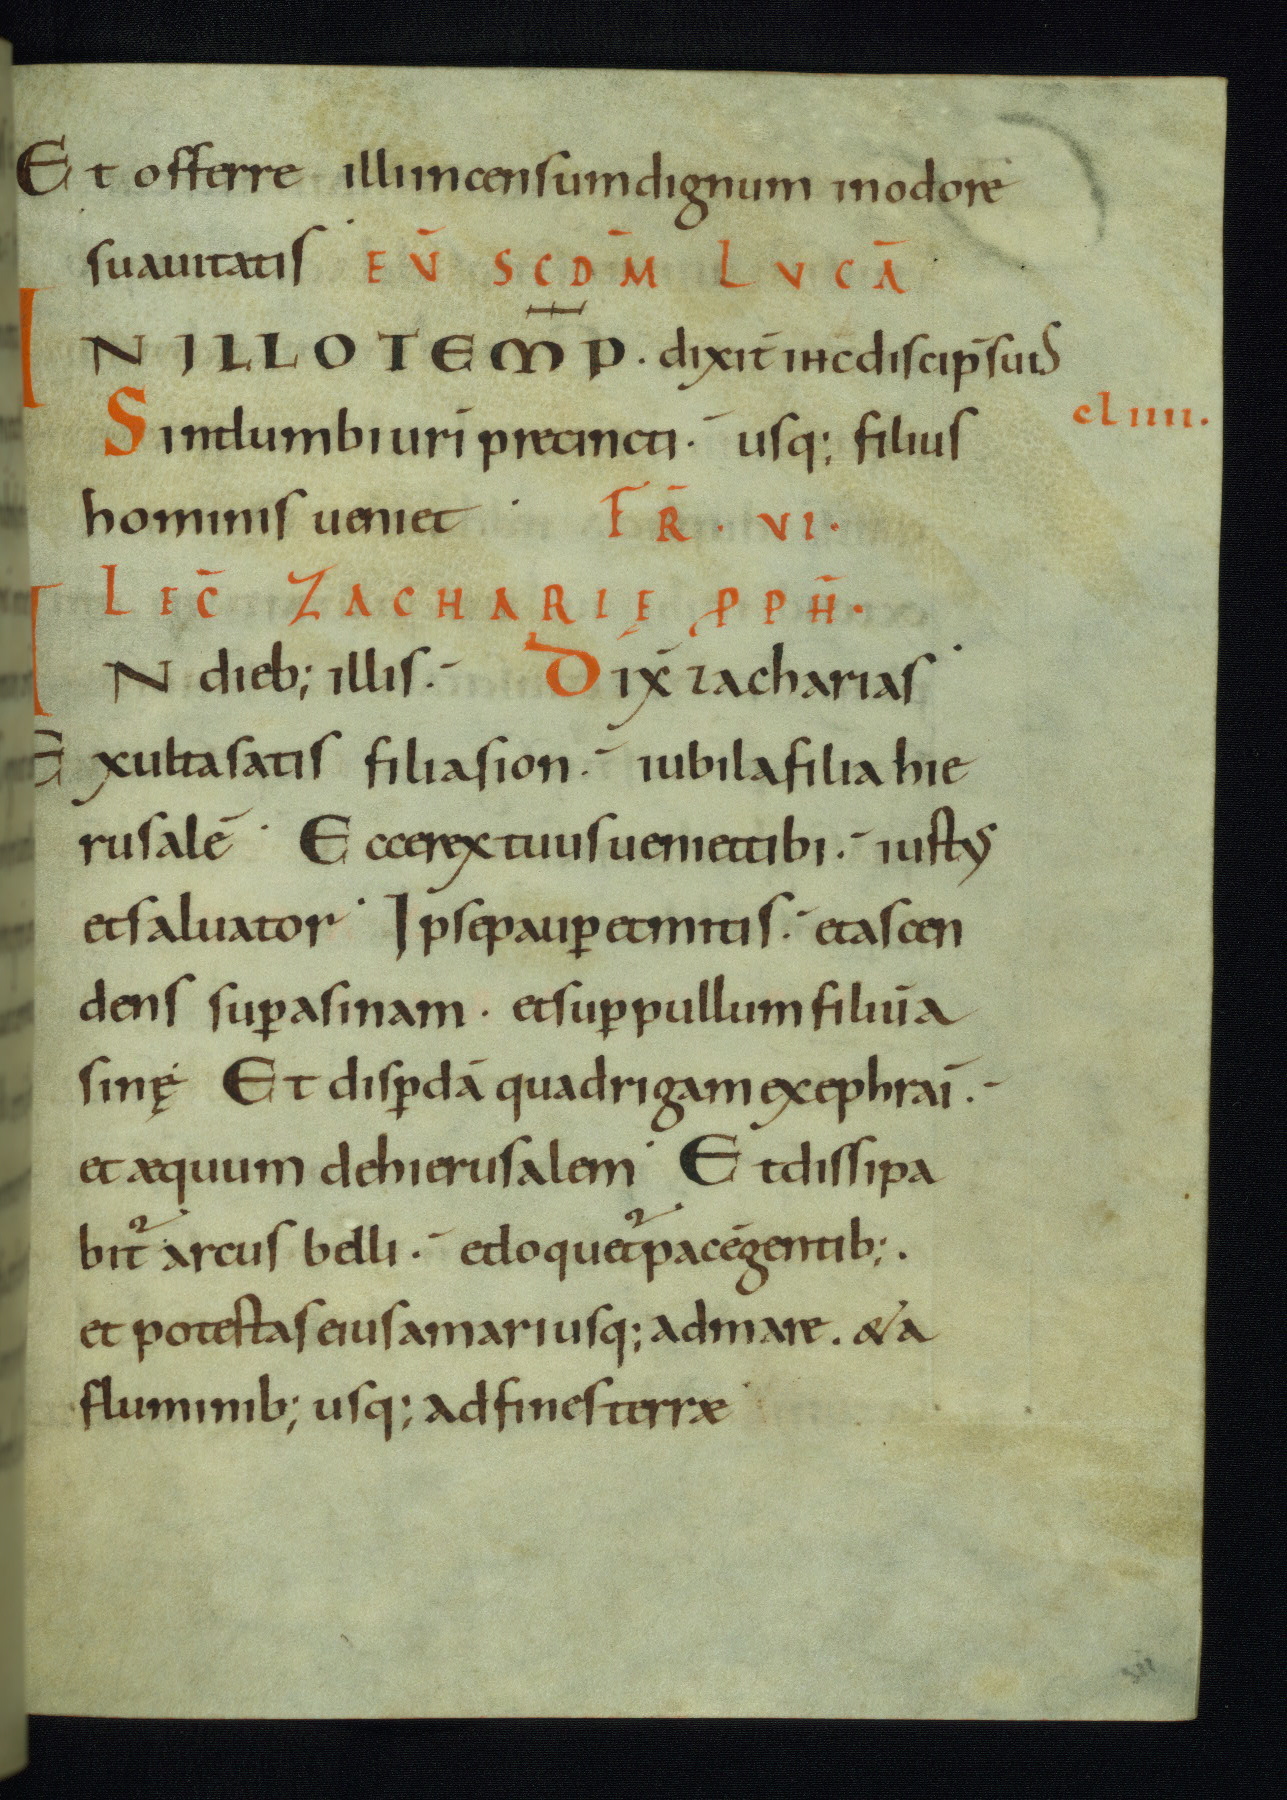 Et offerre illi incensum dignum in odore
suauitatis EV̄ SCDM̄ LVCĀ
IN ILLO TEMP̄. dixit̄ ihc̄ discip̄ suis
Sint lumbi uri̅ precincti. usq; filius
clıııı.
hominis ueniet FR̄. VI.
LEC̄ ZACHARIĘ PPH̄.
IN dieb; illis. Dix̄ zacharias
Exulta satis filia sion. iubila filia hie
rusalē Ecce rex tuus ueniet tibi. iustus
et saluator Ipse paup̲ et mitis. et ascen
dens sup̲ asinam. et sup̲ pullum filiū a
sinę Et disp̲dā quadrigam ex ephraī.
et æquum de hierusalem Et dissipa
bit̄ arcus belli. et loquet̄ pacē gentib;.
et potestas eius a mari usq; ad mare. & a
fluminib; usq; ad fines terræ